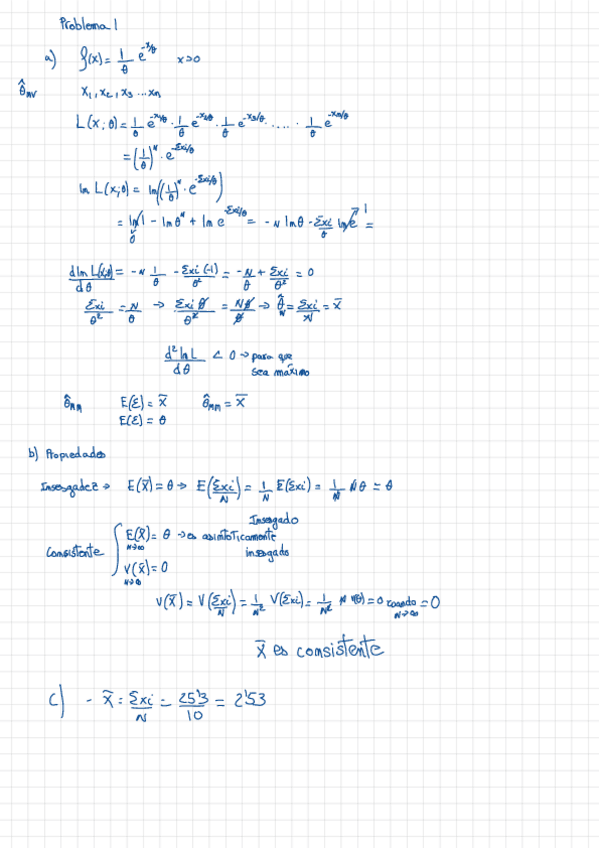 Problema 1
a) f(x) = 1/θ e^(-x/θ) x>0
θ̂_MV x₁, x₂, x₃ ... xₙ
L(x;θ) = 1/θ e^(-x₁/θ) · 1/θ e^(-x₂/θ) · 1/θ e^(-x₃/θ) · .... · 1/θ e^(-xₙ/θ)
= (1/θ)^N · e^(-Σxi/θ)
ln L(x;θ) = ln((1/θ)^N · e^(-Σxi/θ))
= ln 1 - ln θ^N + ln e^(-Σxi/θ) = -N ln θ - Σxi/θ ln e 1 =
0
d ln L(x;θ)/dθ = -N 1/θ - Σxi(-1)/θ² = -N/θ + Σxi/θ² = 0
Σxi/θ² = N/θ → Σxi θ/θ² = Nθ/θ → θ̂ = Σxi/N = x̄
d² ln L/dθ < 0 → para que
sea máximo
θ̂_MM E(ξ) = x̄ θ̂_MM = x̄
E(ξ) = θ
b) Propiedades
Insesgadez → E(x̄) = θ → E(Σxi/N) = 1/N E(Σxi) = 1/N N θ = θ
Insesgado
Consistente { E(x̄) = θ → es asintoticamente
N→∞ insesgado
V(x̄) = 0
N→∞
V(x̄) = V(Σxi/N) = 1/N² V(Σxi) = 1/N² N V(θ) = 0 cuando N→∞ = 0
x̄ es consistente
c) - x̄ = Σxi/N = 25'3/10 = 2'53